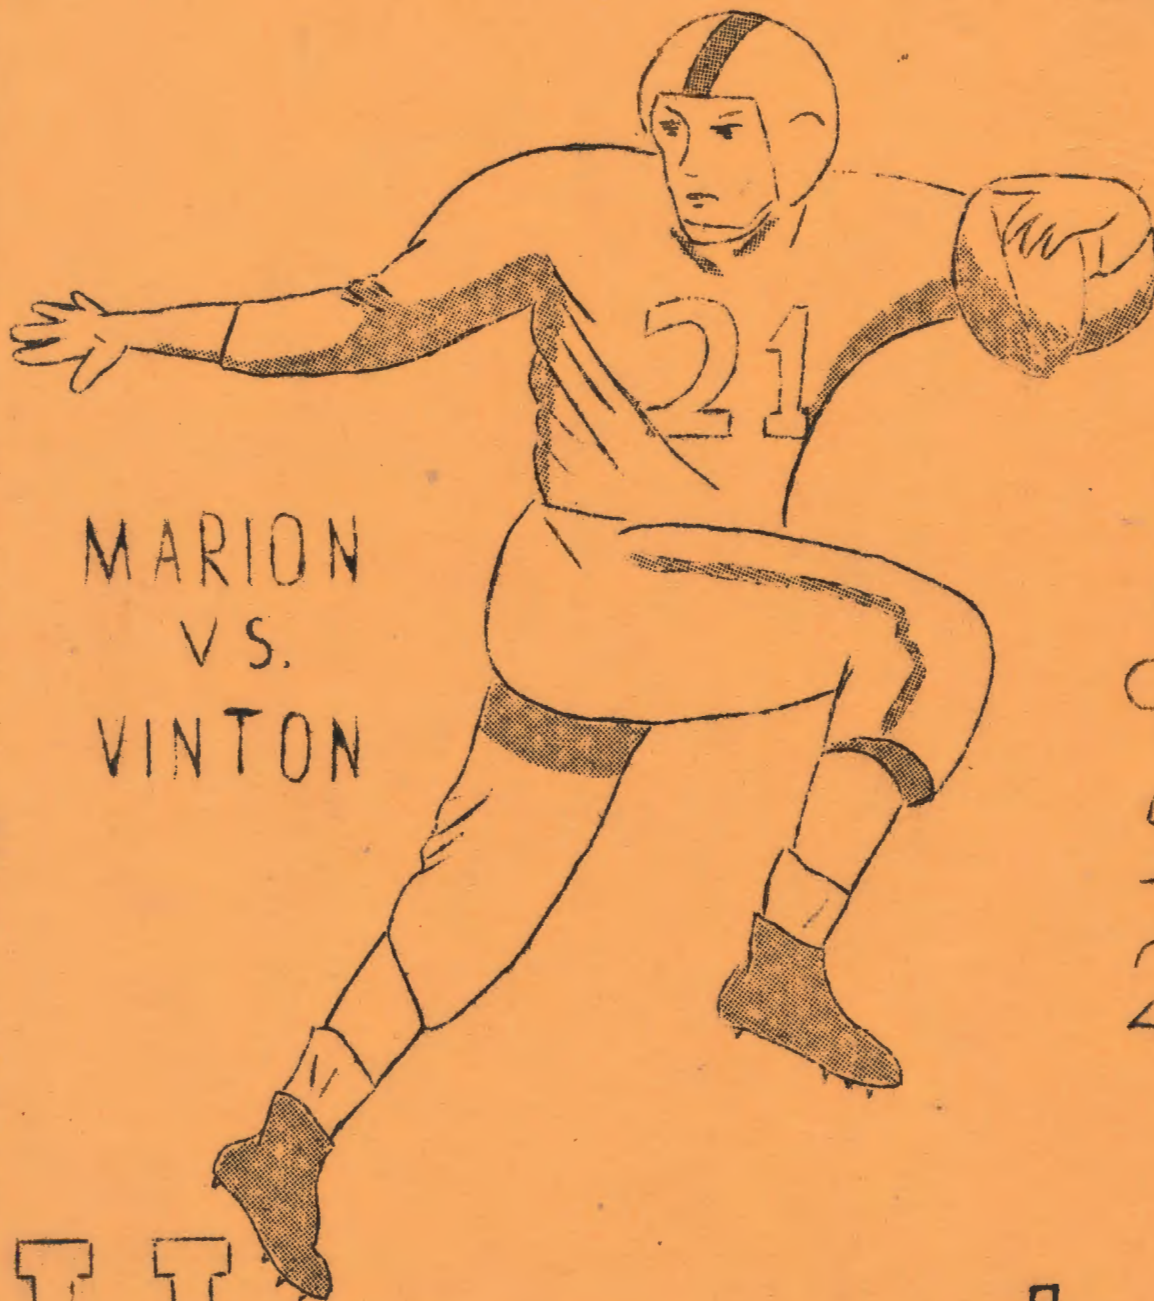 21
MARION
VS.
VINTON